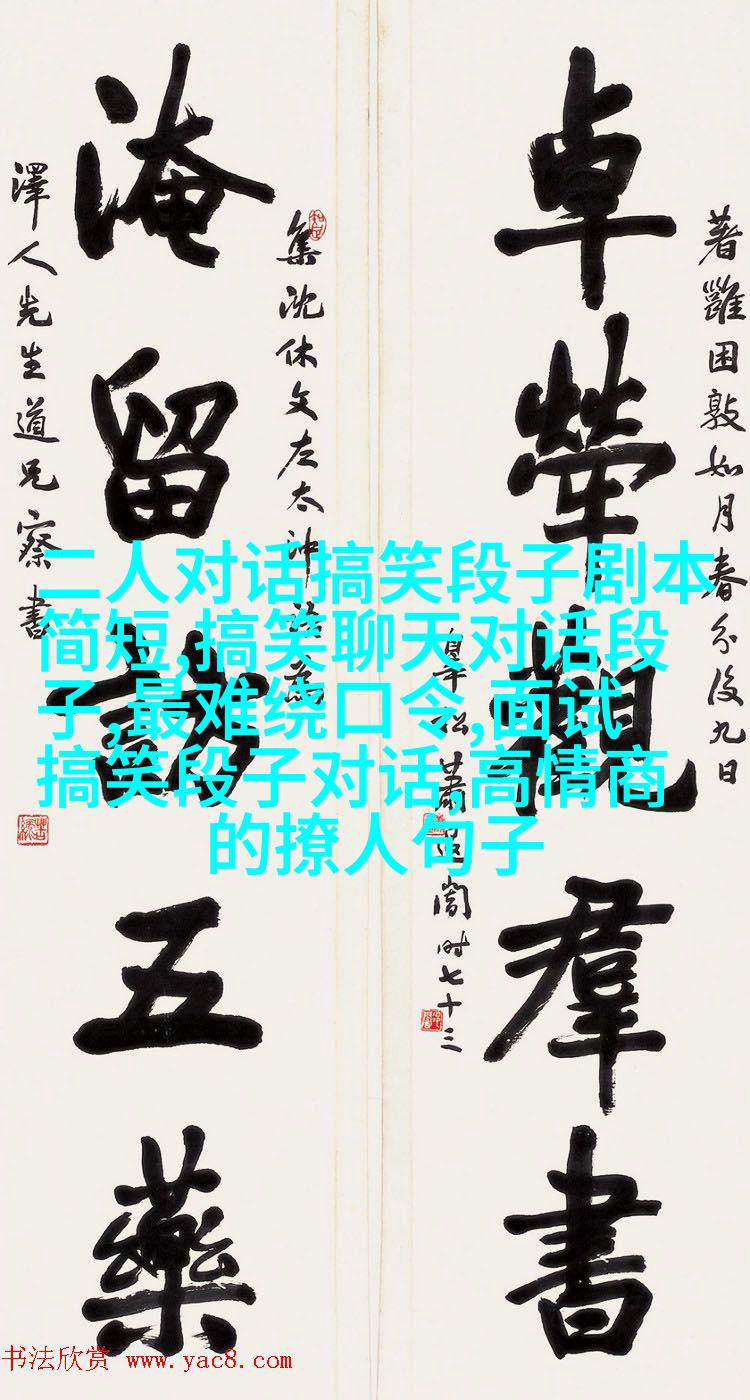 著雝困敦如月春分後九日
卓犖觀羣書
皋松蕭退闇時七十三
集沈休文左太沖語為
淹留訪五藥
澤人先生道兄察書
二人对话搞笑段子剧本
简短,搞笑聊天对话段
子,最难绕口令,面试
搞笑段子对话,高情商
的撩人句子
书法欣赏 www.yac8.com